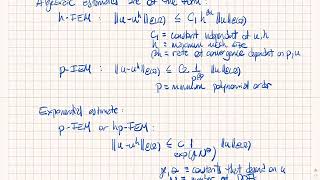 Algebraic estimates are of the form:
h-FEM: ||u-uʰ||E(Ω) ≤ C₁ h^βh ||u||E(Ω)
C₁ = constant independent of u, h
h = maximum mesh size
βh = rate of convergence dependent on p, u
p-FEM: ||u-uʰ||E(Ω) ≤ C₂ 1/p^βp ||u||E(Ω)
p = minimum polynomial order
Exponential estimate:
p-FEM or hp-FEM: ||u-uʰ||E(Ω) ≤ C 1/exp(γN^θ) ||u||E(Ω)
γ, θ = constants that depend on u
N = number of DOF